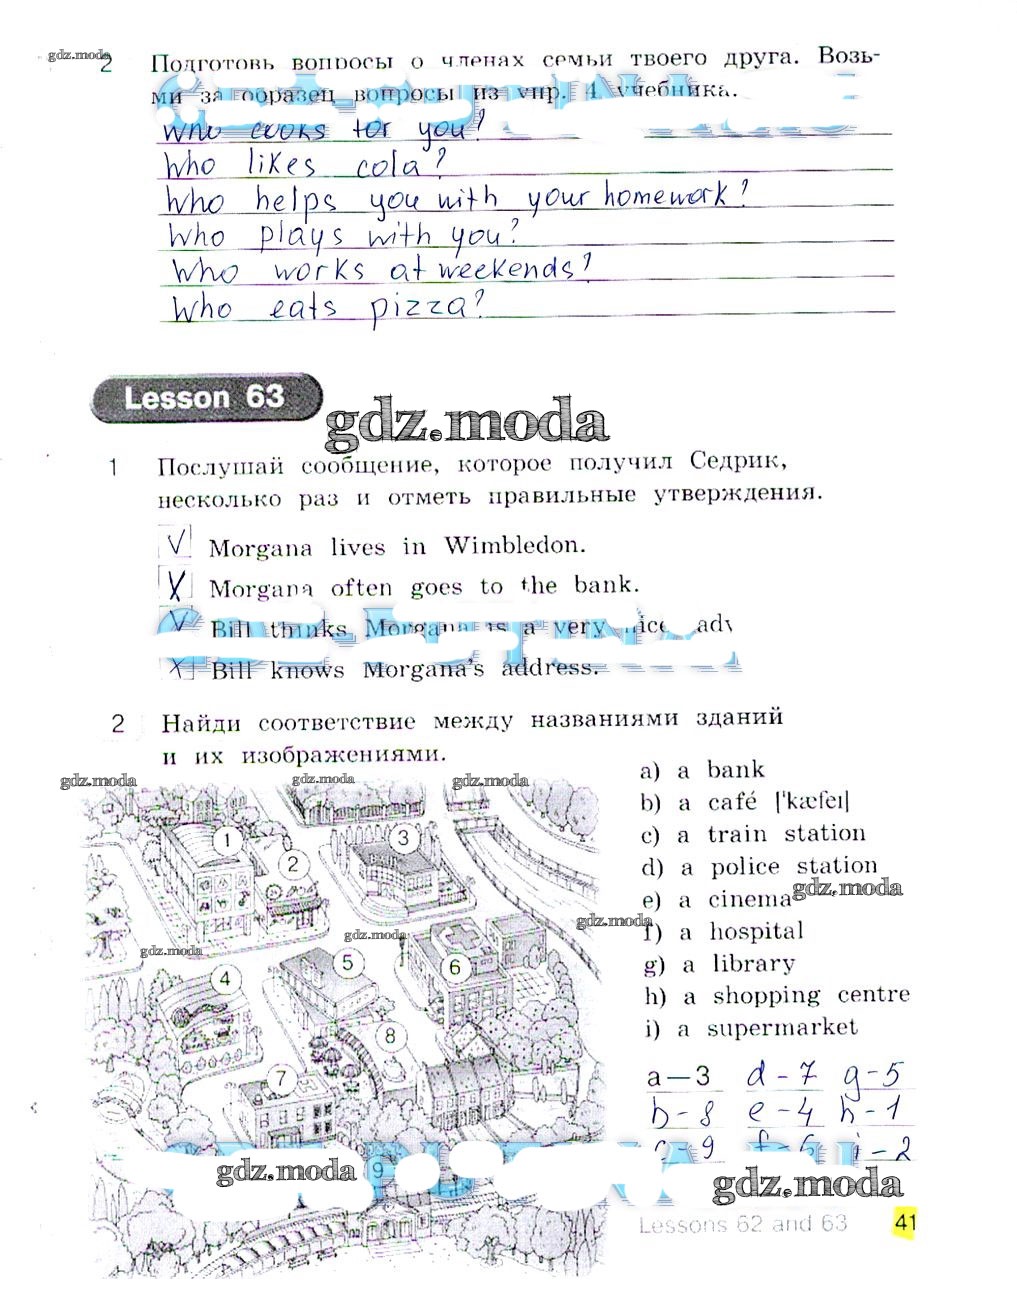 gdz.moda
2 Подготовь вопросы о членах семьи твоего друга. Возь-
ми за образец вопросы из упр. 4 учебника.
Who cooks for you?
Who likes cola?
Who helps you with your homework?
Who plays with you?
Who works at weekends?
Who eats pizza?
Lesson 63
gdz.moda
1 Послушай сообщение, которое получил Седрик,
несколько раз и отметь правильные утверждения.
V Morgana lives in Wimbledon.
X Morgana often goes to the bank.
V Bill thinks Morgana is a very nice
X Bill knows Morgana's address.
2 Найди соответствие между названиями зданий
и их изображениями.
gdz.moda gdz.moda gdz.moda
a) a bank
b) a café ['kæfeɪ]
c) a train station
d) a police station
e) a cinema
gdz.moda
f) a hospital
g) a library
h) a shopping centre
i) a supermarket
1
2
3
gdz.moda
gdz.moda
gdz.moda
4
5
6
7
8
9
a — 3 d - 7 g - 5
b - 8 e - 4 h - 1
c - 9 f - 6 i - 2
gdz.moda
gdz.moda
Lessons 62 and 63 41